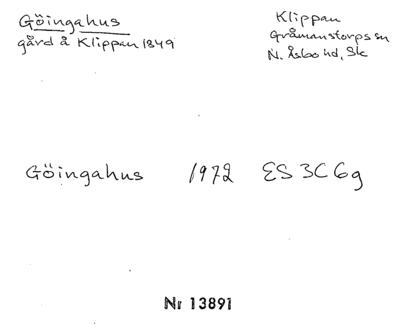 Göingahus
gård å Klippan 1849
Klippan
Gråmanstorps sn
N. Åsbo hd, Sk
Göingahus 1972 ES 3C6g
Nr 13891